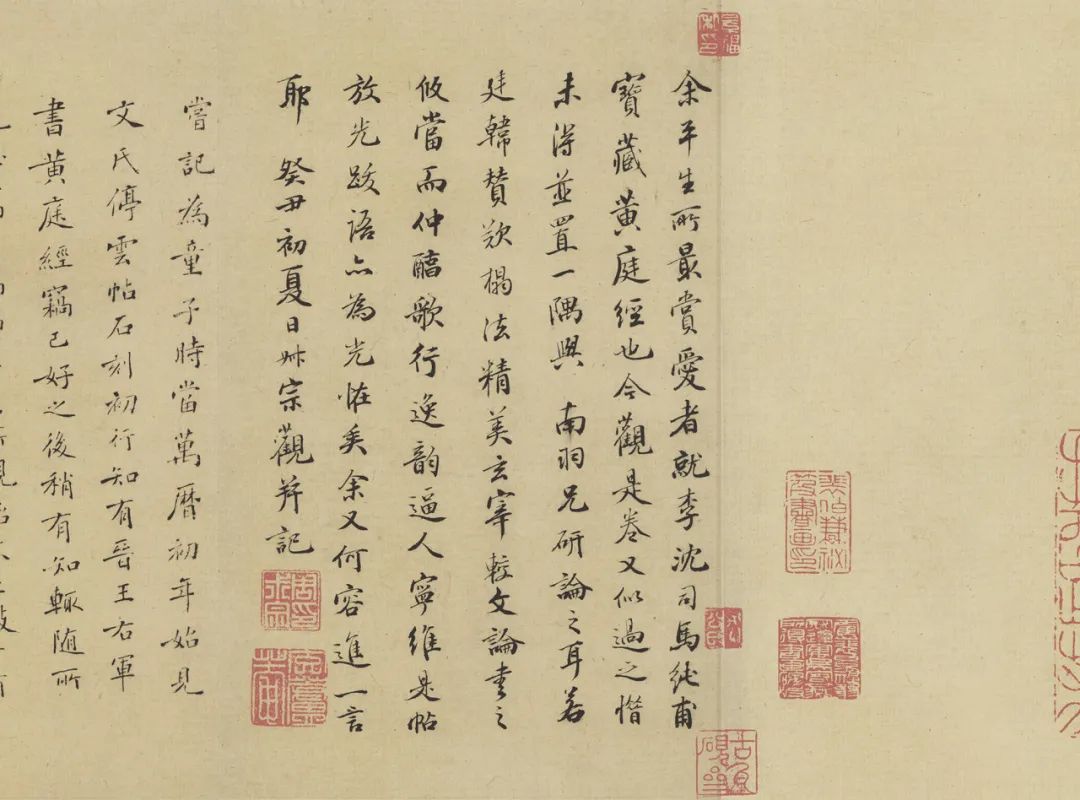 余平生所最賞愛者就李沈司馬純甫
寶藏黄庭經也今觀是卷又似過之惜
未得並置一隅與 南羽兄研論之耳若
廷韓贊欵榻法精美玄宰較文論書之
攸當而仲醕歌行逸韵逼人寧維是帖
放光跋語亦為光怪矣余又何容進一言
耶 癸丑初夏日 宗觀并記
嘗記為童子時當萬曆初年始見
文氏停雲帖石刻初行知有晉王右軍
書黄庭經竊已好之後稍有知輒随所